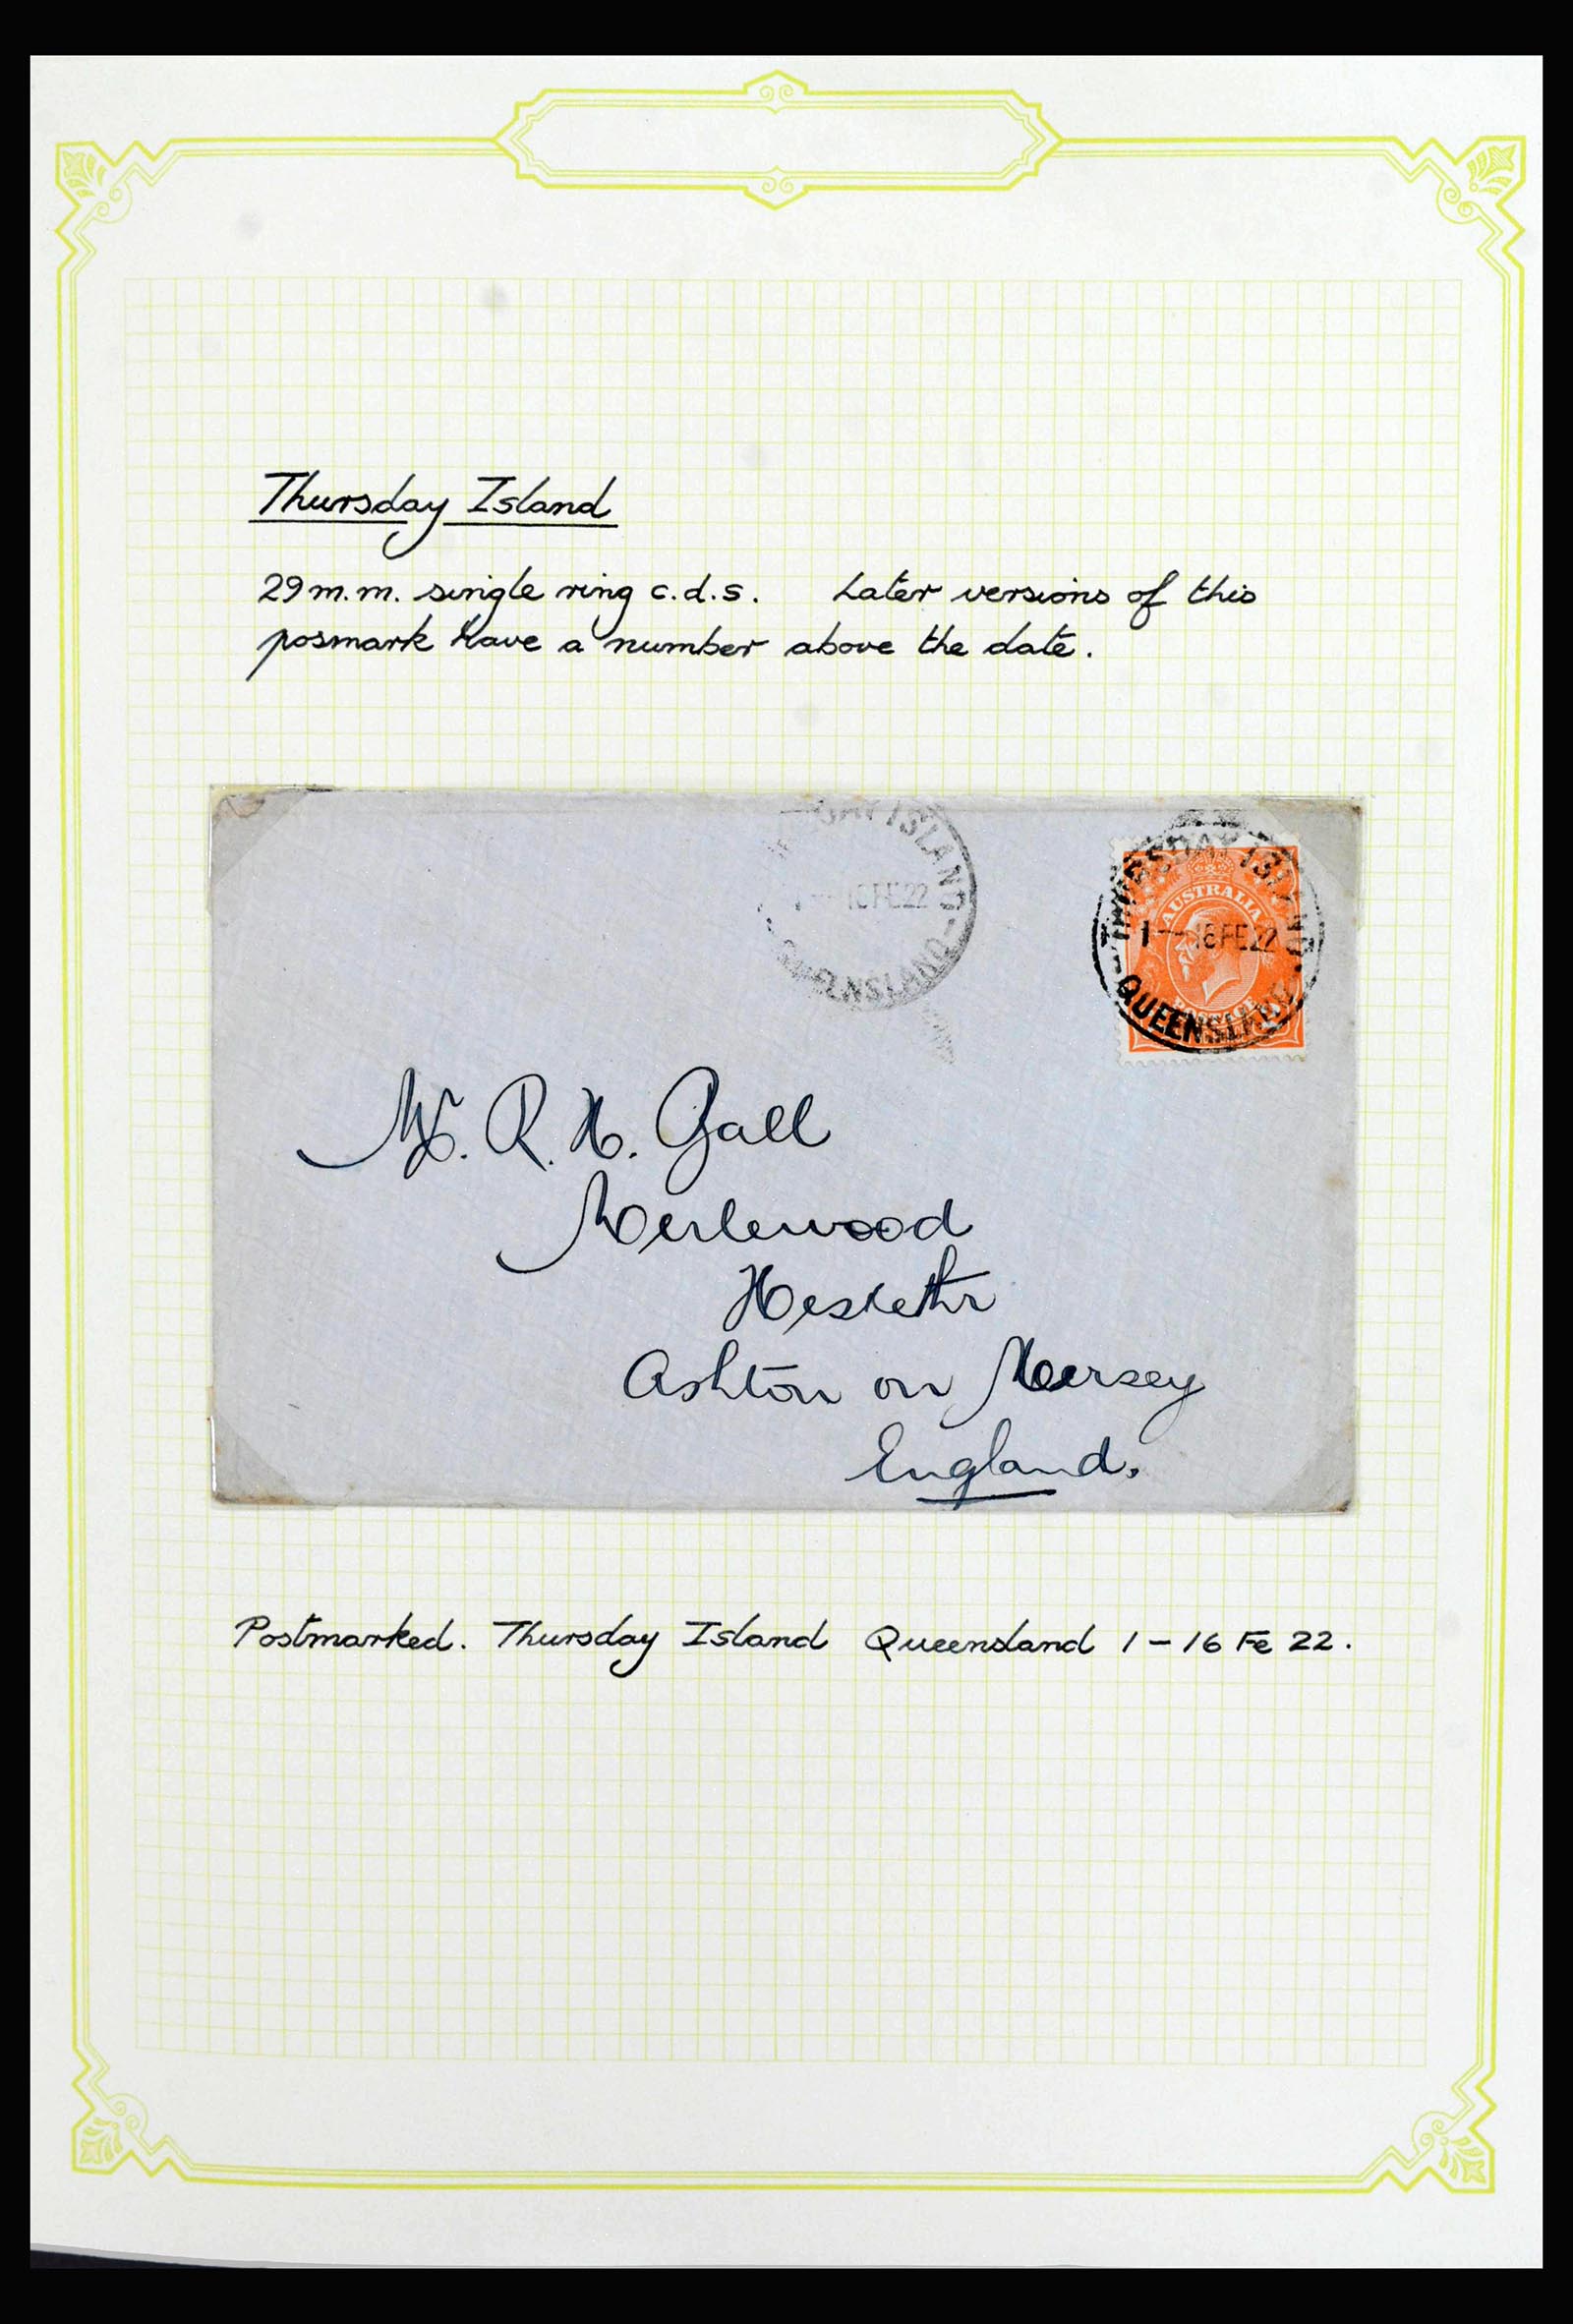 Thursday Island
29 m.m. single ring c.d.s. Later versions of this
posmark have a number above the date.
DAY ISLAND
16 FE 22
QUEENSLAND
THURSDAY ISLAND
AUSTRALIA
1 — 16 FE 22
POSTAGE
QUEENSLAND
Mr. R. H. Gall
Merlewood
Hesketh
Ashton on Mersey
England.
Postmarked. Thursday Island Queensland 1 - 16 Fe 22.